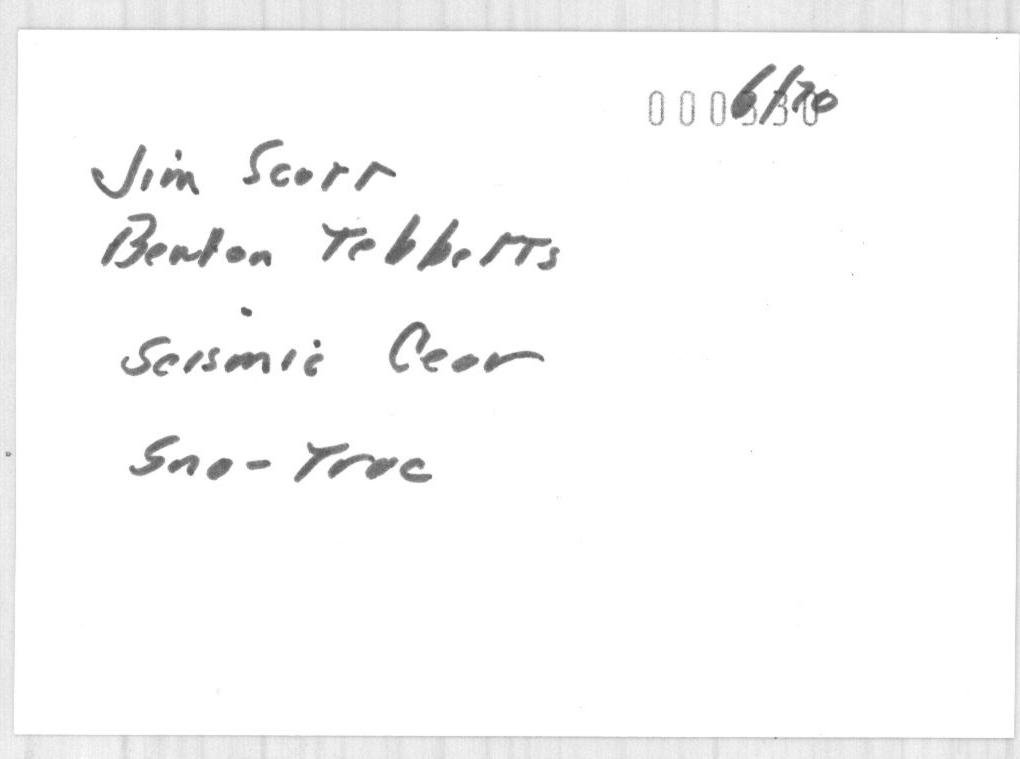 6/70
Jim Scott
Benton Tebbetts
Seismic Gear
Sno-Trac